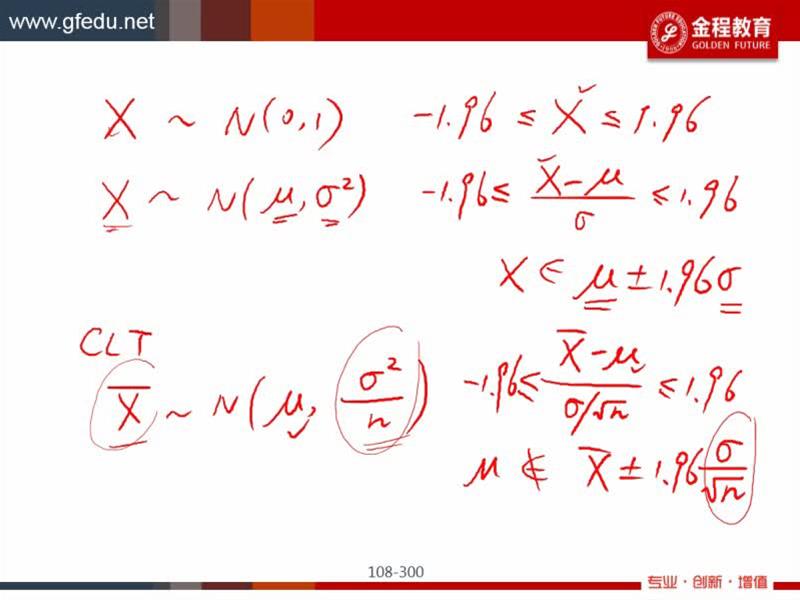 www.gfedu.net
金程教育
GOLDEN FUTURE
X ~ N(0,1) -1.96 ≤ X ≤ 1.96
X ~ N(μ,σ²) -1.96 ≤ (X-μ)/σ ≤ 1.96
X ∈ μ ± 1.96σ
CLT
X̄ ~ N(μ, σ²/n) -1.96 ≤ (X̄-μ)/(σ/√n) ≤ 1.96
μ ∉ X̄ ± 1.96 σ/√n
108-300
专业·创新·增值